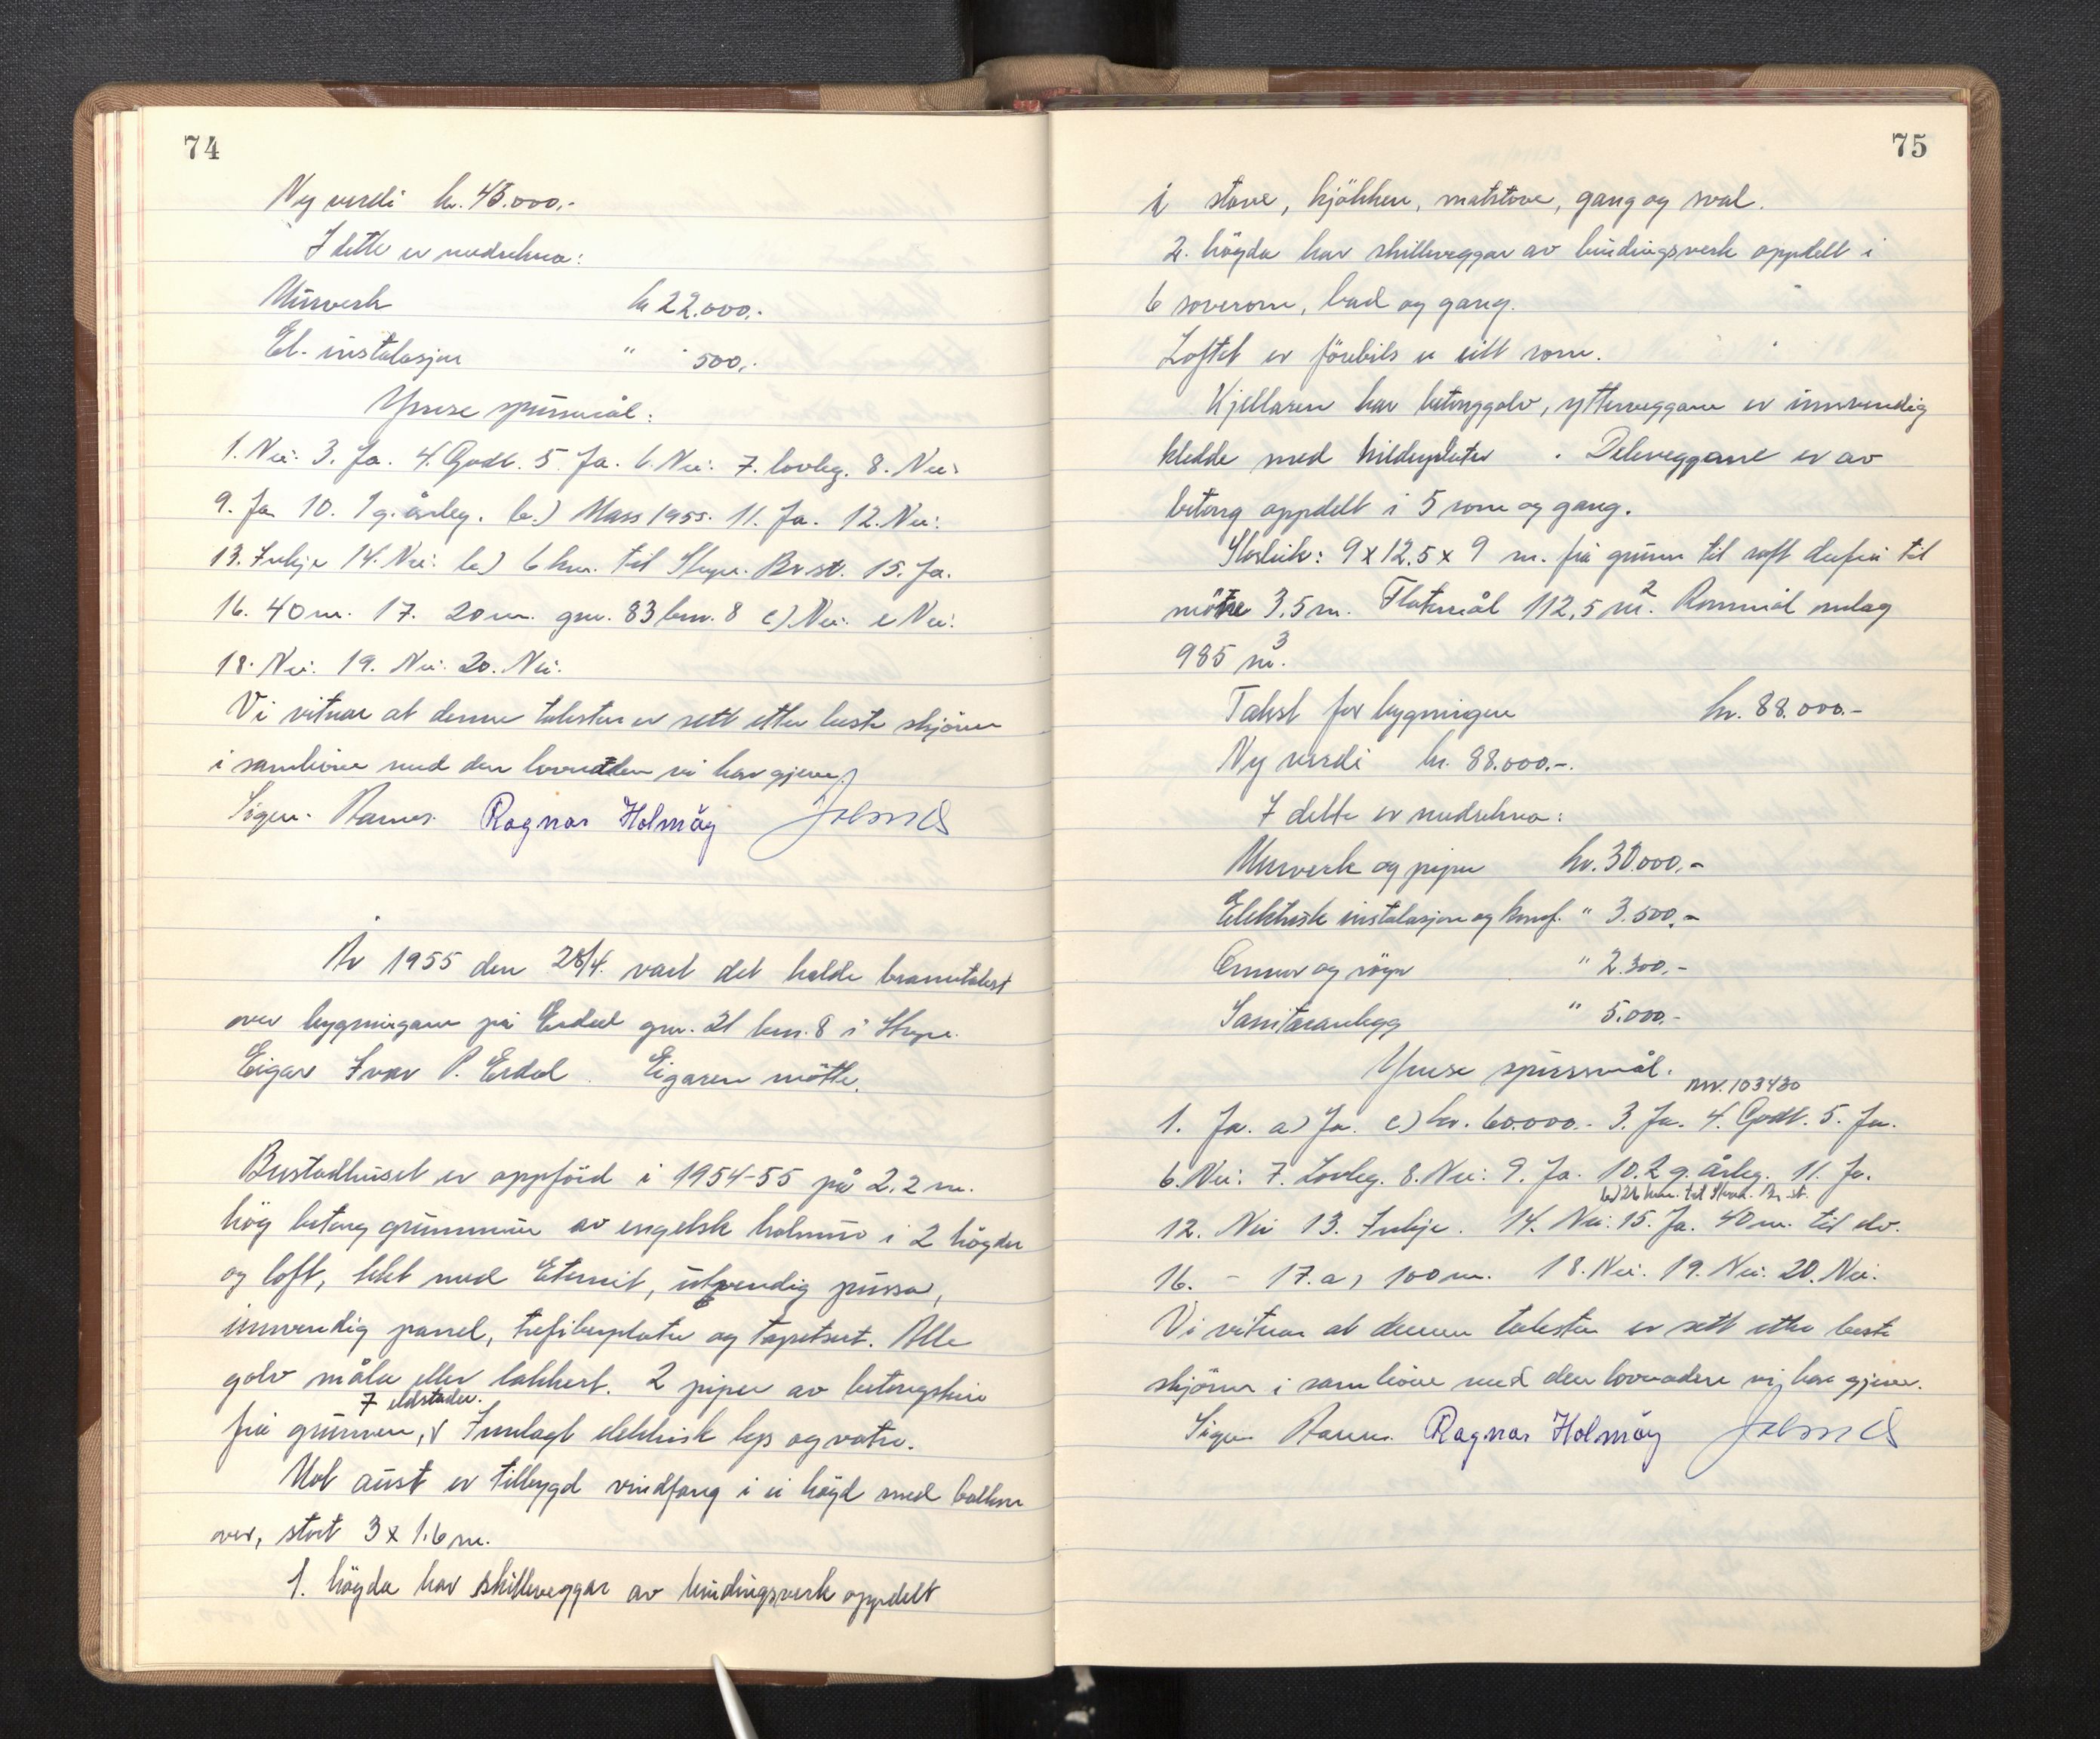 74
Ny verdi kr. 45.000,-
I dette er medrekna:
Murverk kr 22.000,-
El. instalasjon " 500,-
Ymse spursmål:
1. Nei. 3. Ja. 4. Godt. 5 Ja. 6. Nei. 7. lovleg. 8. Nei.
9. Ja 10. 1 g. årleg. b.) Mars 1955. 11. Ja. 12. Nei.
13. Inkje 14. Nei. b) 6 km. til Stryn. Br.st. 15. Ja.
16. 40 m. 17. 20 m. gnr. 83 bnr. 8 c) Nei. e Nei.
18. Nei. 19. Nei. 20. Nei.
Vi vitnar at denne taksten er sett etter beste skjönn
i samhöve med den lovnaden vi har gjeve.
Sigm. Ragnar Holmöy
År 1955 den 28/4. vart det halde branntakst
over bygningane på Erdal gnr. 21 bnr. 8 i Stryn.
Eigar Ivar P. Erdal. Eigaren mötte.
Bustadhuset er oppförd i 1954-55 på 2,2 m.
hög betong grunnmur av engelsk holmur i 2 högder
og loft, tekt med Eternit, utvendig pussa,
innvendig panel, trefiberplater og tapetsert. Alle
golv måla eller lakkert. 2 piper av betongstein
frå grunnen, 7 eldstader. Innlagt elektrisk lys og vatn.
Mot aust er tilbygd vindfang i ei högd med balkon
over, stort 3 x 1.6 m.
1. högda har skilleveggar av bindingsverk oppdelt
75
i stove, kjökken, matstove, gang og sval.
2. högda har skilleveggar av bindingsverk oppdelt i
6 soverom, bad og gang.
Loftet er förebils u eitt rom.
Kjellaren har betonggolv, ytterveggane er innvendig
kledde med . Deleveggane er av
betong oppdelt i 5 rom og gang.
Storleik: 9 x 12,5 x 9 m. frå grunn til raft derfrå til
möne 3.5 m. Flatemål 112,5 m². Rommål omlag
985 m³.
Takst for bygningen kr. 88.000.-
Ny verdi kr. 88.000.-.
I dette er medrekna:
Murverk og piper kr. 30.000,-
Elektrisk instalasjon og komf. " 3.500,-
Omnar og röyr " 2.300,-
Sanitæranlegg " 5.000,-
Ymse spursmål.
nr. 103430
1. Ja. a) Ja. c) kr. 60.000.- 3. Ja. 4. Godt. 5. Ja.
6. Nei. 7. Lovleg. 8. Nei. 9. Ja. 10. 2 g. årleg. 11. Ja.
12. Nei 13. Inkje. 14. Nei. b) 21 km. til Stryn. Br. st. 15. Ja. 40 m. til elv.
16. - 17. a) 100 m. 18. Nei. 19. Nei. 20. Nei.
Vi vitnar at denne taksten er sett etter beste
skjönn i samhöve med den lovnaden vi har gjeve.
Sigm. Ragnar Holmöy